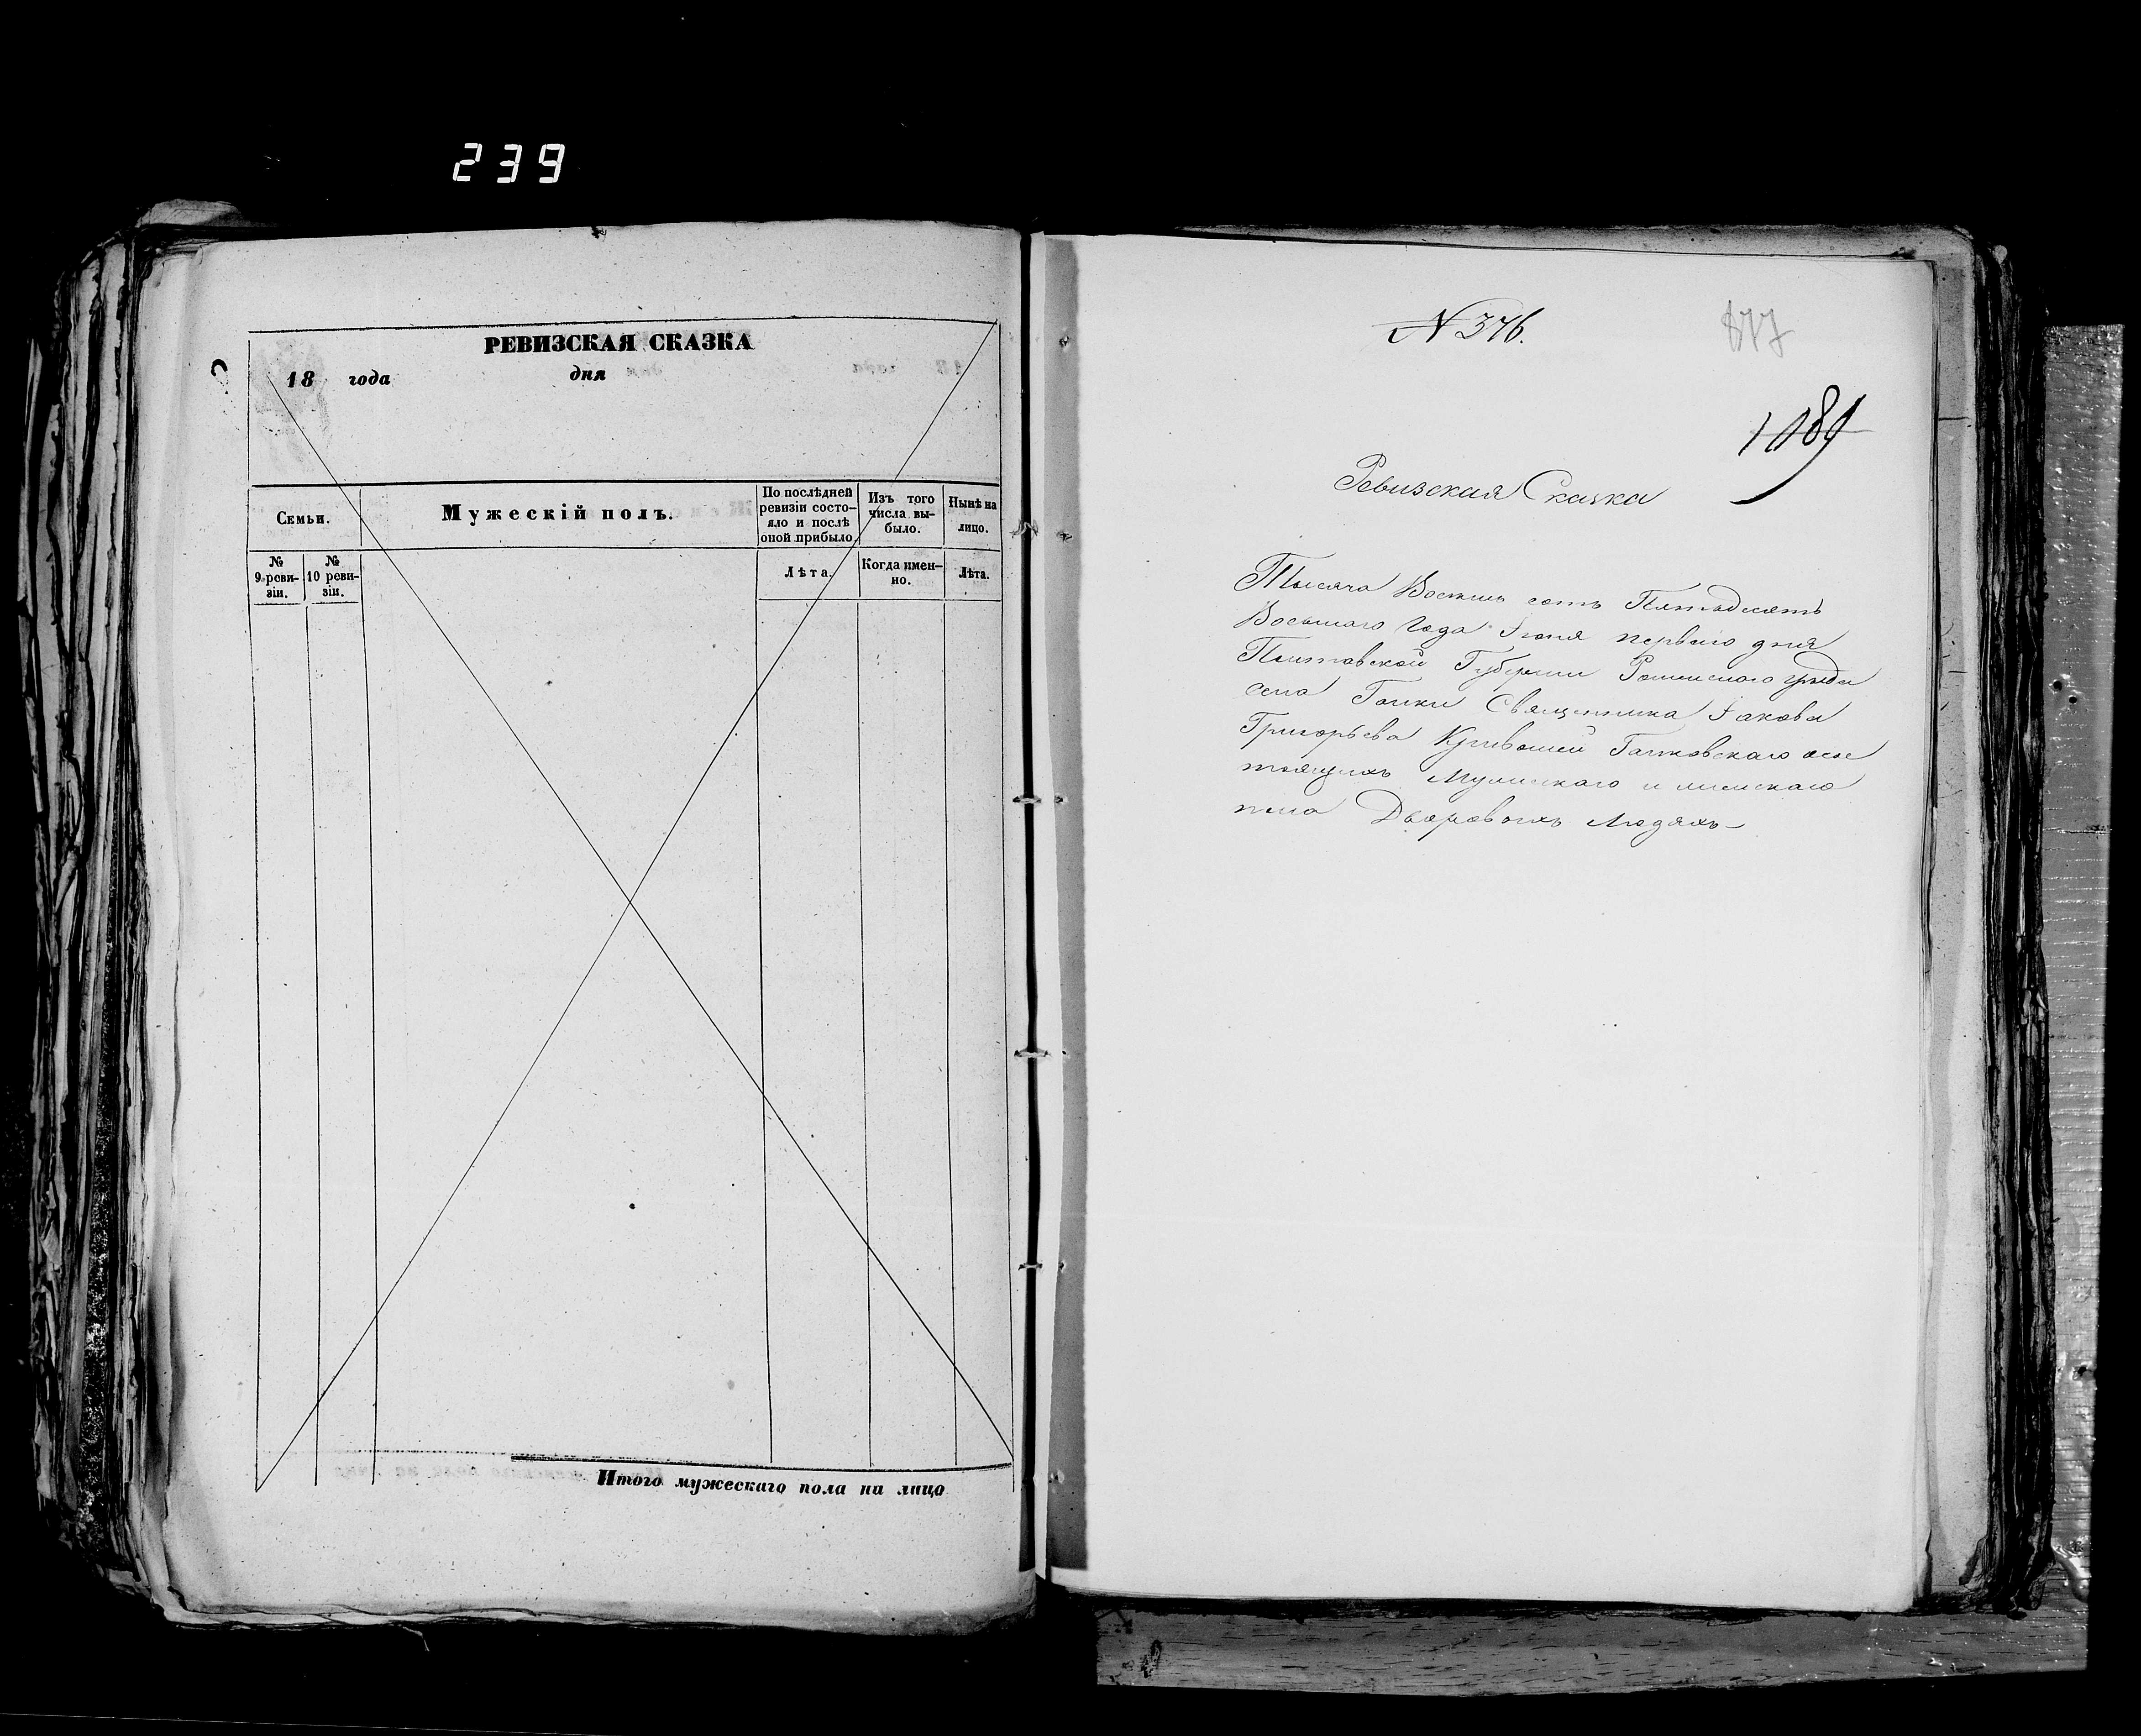 239
РЕВИЗСКАЯ СКАЗКА
18 года дня
Семьи.
Мужескій полъ.
По послѣдней ревизіи состояло и послѣ оной прибыло
Изъ того числа выбыло.
Нынѣ на лицо.
№ 9 ревизіи.
№ 10 ревизіи.
Лѣта.
Когда именно.
Лѣта.
Итого мужескаго пола на лицо
N 376.
1089
Ревизская Сказка
Тысяча Восемь сотъ Пятьдесятъ
Восьмаго Года Іюня перваго дня
Полтавской Губерніи Роменскаго уѣзда
села Священника Іакова
Григорьева Кривошеи сос
тоящихъ Мужескаго и женскаго
пола Дворовыхъ Людяхъ